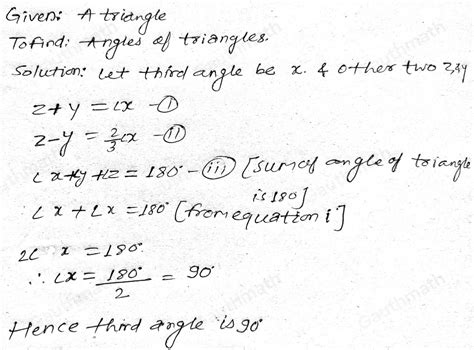 Given: A triangle
To find: Angles of triangles.
Solution: let third angle be x. & other two z,y
z+y = ∠x -(I)
z-y = 2/3 ∠x -(II)
∠x+∠y+∠z = 180° -(iii) [sum of angle of triangle is 180]
∠x + ∠x = 180° [from equation i]
2∠x = 180°
∴ ∠x = 180°/2 = 90°
Hence third angle is 90°
Gauthmath